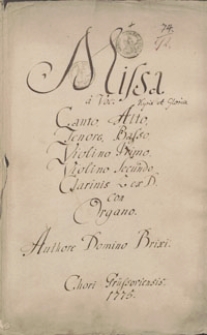 74.
Missa.
à Voc: Kyrie et Gloria
Canto, Alto,
Tenore, Basso,
Violino Primo,
Violino Secundo,
Clarinis 2 ex D.
con
Organo.
Authore Domino Brixi.
Chori Grüssoviensis.
1776.